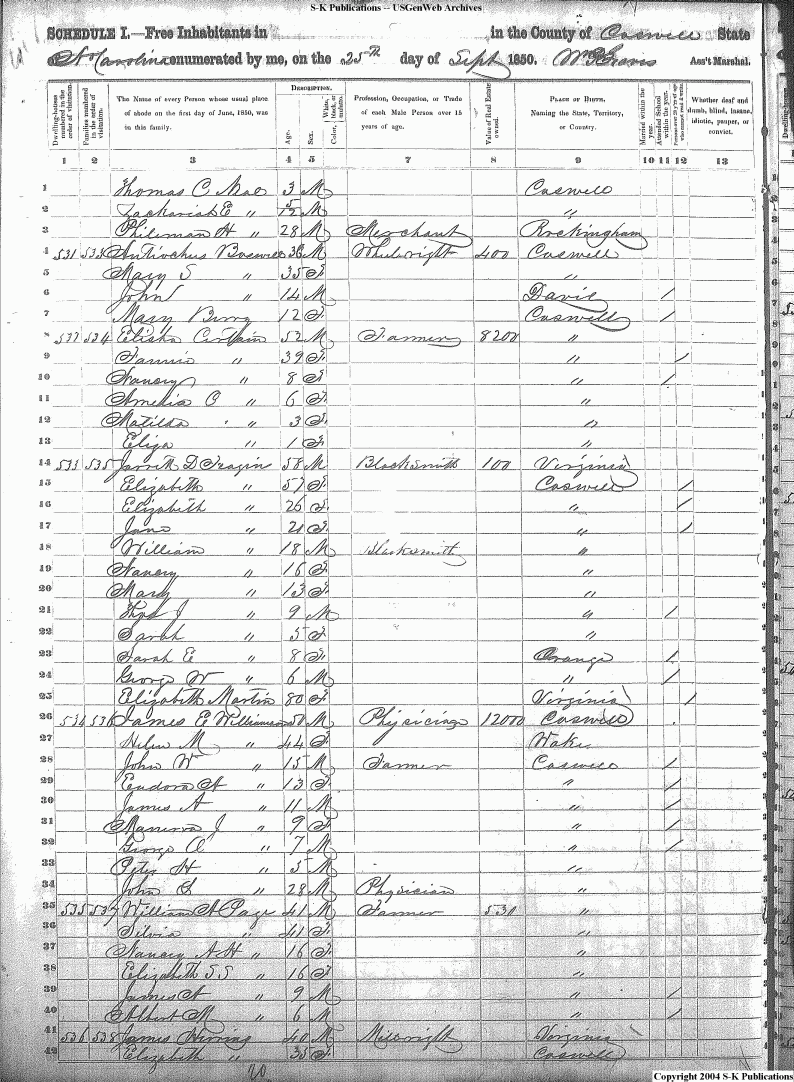 S-K Publications -- USGenWeb Archives
SCHEDULE I.—Free Inhabitants in in the County of Caswell State
N Carolina enumerated by me, on the 25th day of Sept 1850. Ass't Marshal.
DESCRIPTION.
Dwelling-houses numbered in the order of visitation.
Families numbered in the order of visitation.
The Name of every Person whose usual place of abode on the first day of June, 1850, was in this family.
Age.
Sex.
Color, White, black, or mulatto.
Profession, Occupation, or Trade of each Male Person over 15 years of age.
Value of Real Estate owned.
PLACE OF BIRTH. Naming the State, Territory, or Country.
Married within the year.
Attended School within the year.
Persons over 20 y'rs of age who cannot read & write.
Whether deaf and dumb, blind, insane, idiotic, pauper, or convict.
1 2 3 4 5 6 7 8 9 10 11 12 13
1 Thomas C 3 M Caswell
2 Zachariah E " 5/12 M "
3 Phileman H " 28 M Merchant Rockingham
4 531 533 Antiochus Boswell 36 M Wheelwright 400 Caswell
5 Mary S " 35 F "
6 John " 14 M Davie /
7 Mary 12 F Caswell /
8 532 534 Elisha 52 M Farmer 8200 "
9 Fannie " 39 F " /
10 Nancy " 8 F " /
11 Amelia C " 6 F "
12 Matilda " 3 F "
13 Eliza " 1 F "
14 533 535 58 M Blacksmith 100 Virginia
15 Elizabeth " 57 F Caswell /
16 Elizabeth " 26 F " /
17 Jane " 21 F " /
18 William " 18 M Blacksmith "
19 Nancy " 16 F "
20 Mary " 13 F "
21 Thos J " 9 M " /
22 Sarah " 5 F "
23 Sarah E " 8 F Orange /
24 George W " 6 M " /
25 Elizabeth Martin 80 F Virginia /
26 534 536 James E Williamson 50 M Physician 12000 Caswell
27 Helen M " 44 F Wake
28 John W " 15 M Farmer Caswell /
29 Eudora A " 13 F " /
30 James A " 11 M " /
31 Manerva J " 9 F " /
32 George " 7 M " /
33 H " 5 M "
34 John " 28 M Physician "
35 535 537 William A Page 41 M Farmer 530 "
36 Silvia " 41 F "
37 Nancy A H " 16 F "
38 Elizabeth S S " 16 F "
39 James A " 9 M " /
40 Albert M " 6 M " /
41 536 538 James Herring 40 M Millwright Virginia
42 Elizabeth " 35 F Caswell
Copyright 2004 S-K Publications